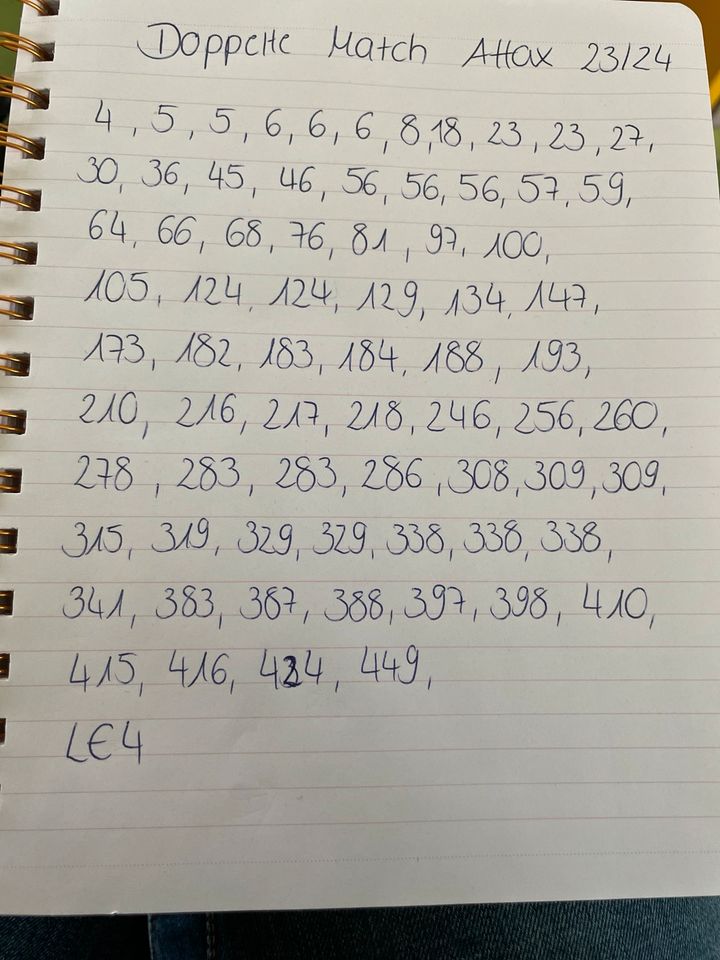 Doppelte Match Attax 23/24
4, 5, 5, 6, 6, 6, 8, 18, 23, 23, 27,
30, 36, 45, 46, 56, 56, 56, 57, 59,
64, 66, 68, 76, 81, 97, 100,
105, 124, 124, 129, 134, 147,
173, 182, 183, 184, 188, 193,
210, 216, 217, 218, 246, 256, 260,
278, 283, 283, 286, 308, 309, 309,
315, 319, 329, 329, 338, 338, 338,
341, 383, 387, 388, 397, 398, 410,
415, 416, 424, 449,
LE4